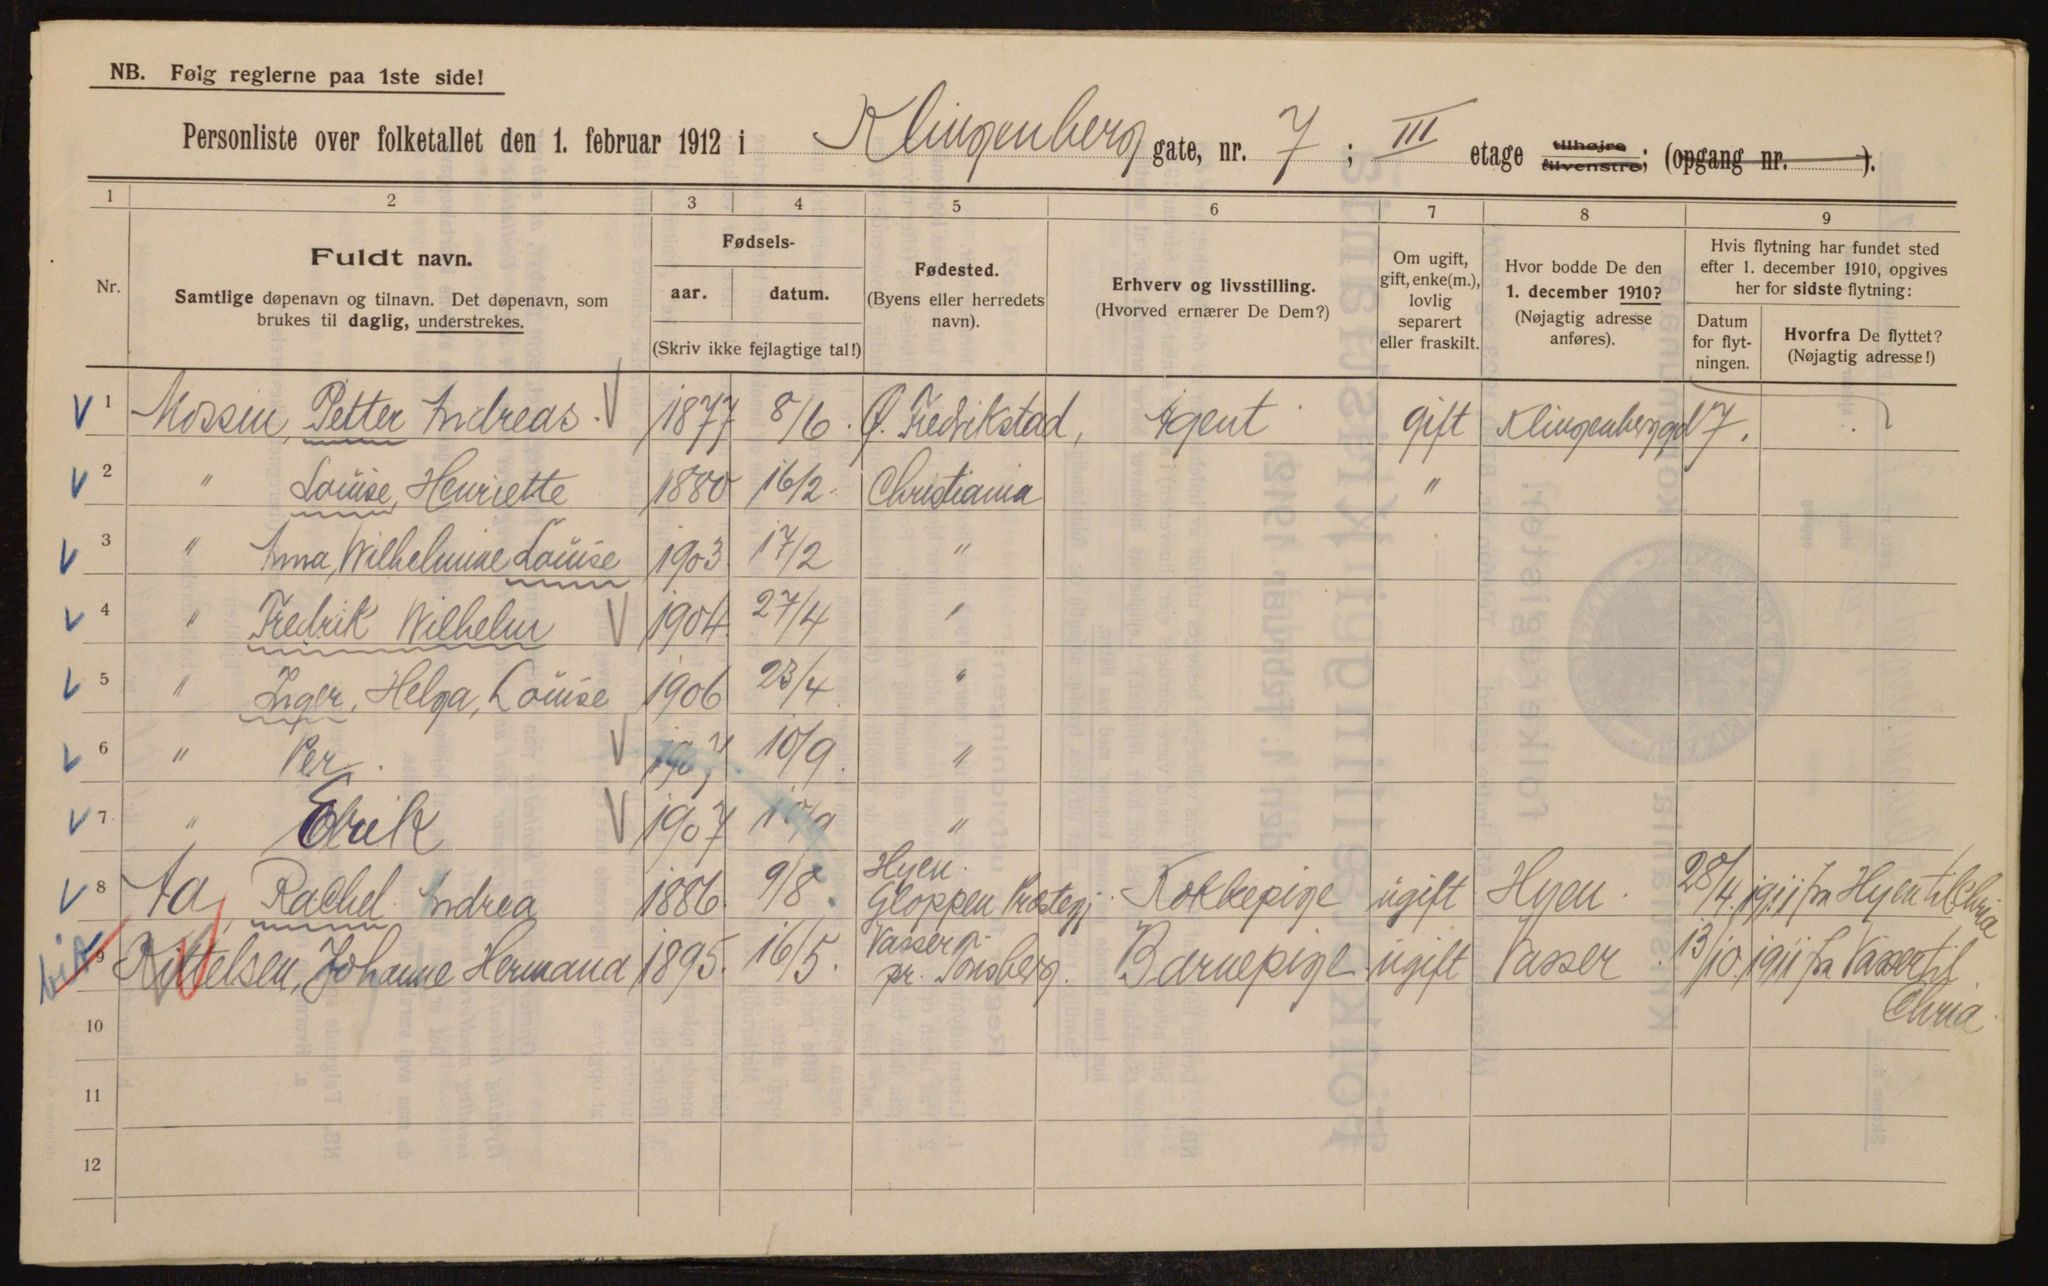 NB. Følg reglerne paa 1ste side!
Personliste over folketallet den 1. februar 1912 i Klingenberg gate, nr. 7 ; III etage tilhøjre tilvenstre; (opgang nr. ).
1 2 3 4 5 6 7 8 9
Nr.
Fuldt navn.
Samtlige døpenavn og tilnavn. Det døpenavn, som
brukes til daglig, understrekes.
Fødsels-
aar. datum.
(Skriv ikke fejlagtige tal!)
Fødested.
(Byens eller herredets
navn).
Erhverv og livsstilling.
(Hvorved ernærer De Dem?)
Om ugift,
gift, enke(m.),
lovlig
separert
eller fraskilt.
Hvor bodde De den
1. december 1910?
(Nøjagtig adresse
anføres).
Hvis flytning har fundet sted
efter 1. december 1910, opgives
her for sidste flytning:
Datum
for flyt-
ningen.
Hvorfra De flyttet?
(Nøjagtig adresse!)
1 Mossin, Petter Andreas. 1877 8/6. Ø. Fredrikstad, Agent gift Klingenberggd 7.
2 " Louise, Henriette 1880 16/2. Christiania "
3 " Anna, Wilhelmine Louise 1903 17/2 "
4 " Fredrik Wilhelm 1904. 27/4 "
5 " Inger, Helga, Louise 1906 23/4 "
6 " Per. 1907. 10/9. "
7 " Erik 1907 10/9 "
8 Aa, Rachel Andrea 1886. 9/8. Hyen. Gloppen Præstegj. Kokkepige ugift Hyen. 28/4. 1911 fra Hyen til Chria
9 Kittelsen, Johanne Hermana 1895. 16/5. Vasser pr. Tønsberg. Barnepige ugift Vasser. 13/10. 1911 fra Vasser til
Chria.
10
11
12